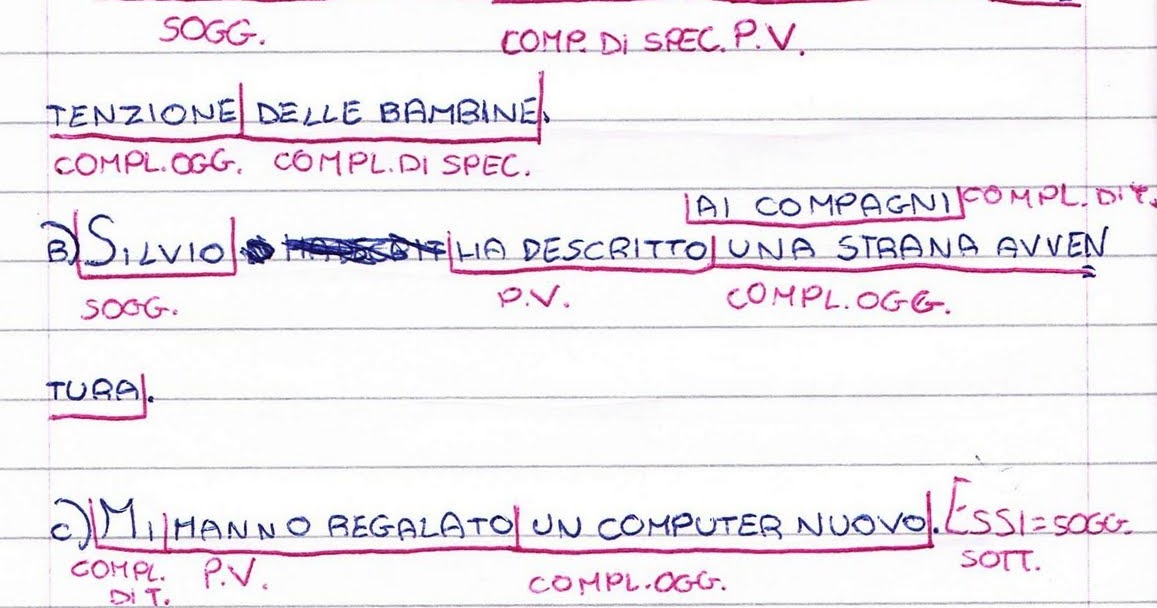 SOGG. COMP. Di SPEC. P.V.
TENZIONE DELLE BAMBINE.
COMPL.OGG. COMPL.DI SPEC.
AI COMPAGNI COMPL. DI T.
B) SILVIO HA DESCRITTO UNA STRANA AVVEN=
SOGG. P.V. COMPL.OGG.
TURA.
C) MI HANNO REGALATO UN COMPUTER NUOVO. ESSI=SOGG.
SOTT.
COMPL. P.V. COMPL.OGG.
DI T.